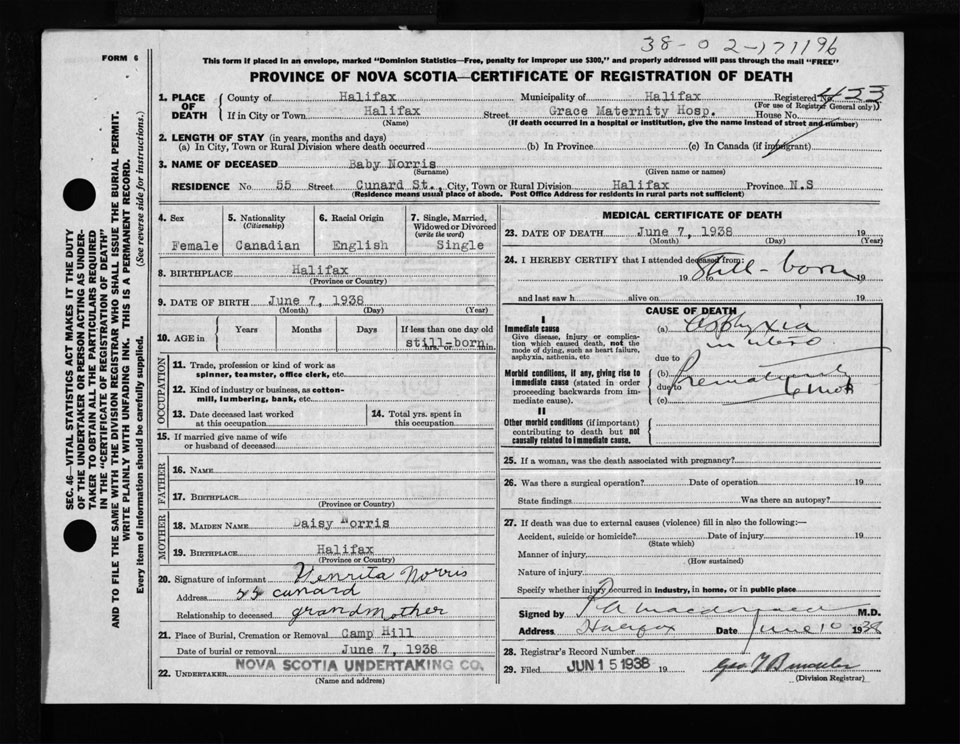 38-02-171196
FORM 6
This form if placed in an envelope, marked "Dominion Statistics—Free, penalty for improper use $300," and properly addressed will pass through the mail "FREE"
PROVINCE OF NOVA SCOTIA—CERTIFICATE OF REGISTRATION OF DEATH
1. PLACE OF DEATH
County of Halifax Municipality of Halifax Registered No. 433
(For use of Registrar General only)
If in City or Town Halifax Street Grace Maternity Hosp. House No.
(Name) (If death occurred in a hospital or institution, give the name instead of street and number)
2. LENGTH OF STAY (in years, months and days)
(a) In City, Town or Rural Division where death occurred (b) In Province (c) In Canada (if immigrant)
3. NAME OF DECEASED Baby Norris
(Surname) (Given name or names)
RESIDENCE No 55 Street Cunard St., City, Town or Rural Division Halifax Province N.S
(Residence means usual place of abode. Post Office Address for residents in rural parts not sufficient)
4. Sex
Female
5. Nationality
(Citizenship)
Canadian
6. Racial Origin
English
7. Single, Married, Widowed or Divorced
(write the word)
Single
8. BIRTHPLACE Halifax
(Province or Country)
9. DATE OF BIRTH June 7, 1938
(Month) (Day) (Year)
10. AGE in
Years Months Days If less than one day old
still-born
hrs. or min.
OCCUPATION
11. Trade, profession or kind of work as
spinner, teamster, office clerk, etc.
12. Kind of industry or business, as cotton-
mill, lumbering, bank, etc.
13. Date deceased last worked
at this occupation
14. Total yrs. spent in
this occupation
15. If married give name of wife
or husband of deceased
FATHER
16. NAME
17. BIRTHPLACE
(Province or Country)
MOTHER
18. MAIDEN NAME Daisy Norris
19. BIRTHPLACE Halifax
(Province or Country)
20. Signature of informant Henrita Norris
Address 55 cunard
Relationship to deceased grandmother
21. Place of Burial, Cremation or Removal Camp Hill
Date of burial or removal June 7, 1938
22. UNDERTAKER NOVA SCOTIA UNDERTAKING CO.
(Name and address)
MEDICAL CERTIFICATE OF DEATH
23. DATE OF DEATH June 7, 1938 19
(Month) (Day) (Year)
24. I HEREBY CERTIFY that I attended deceased from:
19 Still-born 19
and last saw h alive on 19
CAUSE OF DEATH
I
Immediate cause
Give disease, injury or complica-
tion which caused death, not the
mode of dying, such as heart failure,
asphyxia, asthenia, etc
(a) Asphyxia
in utero
due to
Morbid conditions, if any, giving rise to
immediate cause (stated in order
proceeding backwards from im-
mediate cause).
(b) Prematurity
due to
(c)
II
Other morbid conditions (if important)
contributing to death but not
causally related to immediate cause.
25. If a woman, was the death associated with pregnancy?
26. Was there a surgical operation? Date of operation 19
State findings Was there an autopsy?
27. If death was due to external causes (violence) fill in also the following:—
Accident, suicide or homicide? Date of injury 19
(State which)
Manner of injury
(How sustained)
Nature of injury
Specify whether injury occurred in industry, in home, or in public place
Signed by M.D.
Address Halifax Date June 10 1938
28. Registrar's Record Number
29. Filed JUN 15 1938 19
(Division Registrar)
SEC. 46—VITAL STATISTICS ACT MAKES IT THE DUTY
OF THE UNDERTAKER OR PERSON ACTING AS UNDER-
TAKER TO OBTAIN ALL THE PARTICULARS REQUIRED
IN THE "CERTIFICATE OF REGISTRATION OF DEATH"
AND TO FILE THE SAME WITH THE DIVISION REGISTRAR WHO SHALL ISSUE THE BURIAL PERMIT.
WRITE PLAINLY WITH UNFADING INK. THIS IS A PERMANENT RECORD.
Every item of information should be carefully supplied. (See reverse side for instructions.)